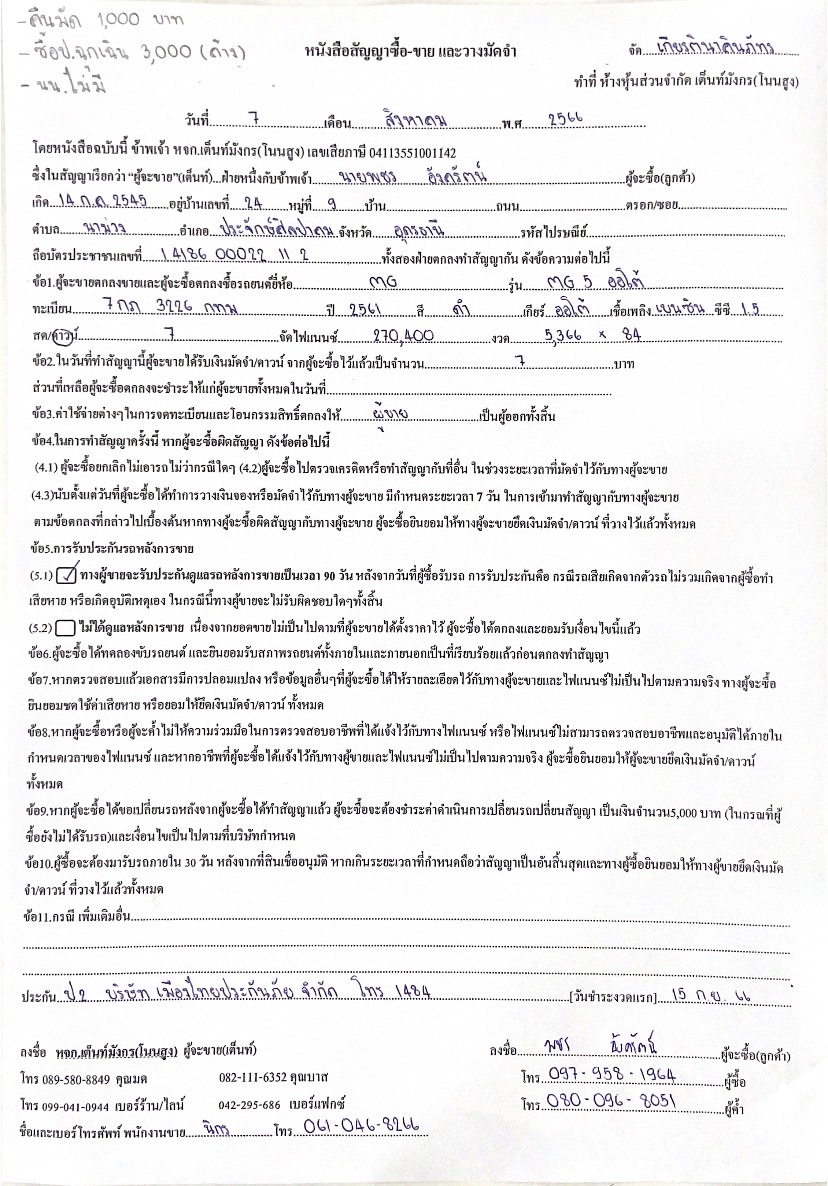 - คืนมัด 1,000 บาท
- ช็อป.ฉุกเฉิน 3,000 (ค้าง)
- นน.ไม่มี
หนังสือสัญญาซื้อ-ขาย และวางมัดจำ
จัด เกียรตินาคินภัทร
ทำที่ ห้างหุ้นส่วนจำกัด เต็นท์มังกร(โนนสูง)
วันที่ 7 เดือน สิงหาคม พ.ศ 2566
โดยหนังสือฉบับนี้ ข้าพเจ้า หจก.เต็นท์มังกร(โนนสูง) เลขเสียภาษี 04113551001142
ซึ่งในสัญญาเรียกว่า "ผู้จะขาย"(เต็นท์)...ฝ่ายหนึ่งกับข้าพเจ้า นายพชร อังคศิรัตน์ ผู้จะซื้อ(ลูกค้า)
เกิด 14 ก.ค. 2545 อยู่บ้านเลขที่ 24 หมู่ที่ 9 บ้าน ถนน ตรอก/ซอย
ตำบล นาม่วง อำเภอ ประจักษ์ศิลปาคม จังหวัด อุดรธานี รหัสไปรษณีย์
ถือบัตรประชาชนเลขที่ 1 4186 00022 11 2 ทั้งสองฝ่ายตกลงทำสัญญากัน ดังข้อความต่อไปนี้
ข้อ1.ผู้จะขายตกลงขายและผู้จะซื้อตกลงซื้อรถยนต์ยี่ห้อ MG รุ่น MG 5 ออโต้
ทะเบียน 7กภ 3226 กทม ปี 2561 สี ดำ เกียร์ ออโต้ เชื้อเพลิง เบนซิน ซีซี 1.5
สด/ดาวน์ 7 จัดไฟแนนซ์ 270,400 งวด 5,366 x 84
ข้อ2.ในวันที่ทำสัญญานี้ผู้จะขายได้รับเงินมัดจำ/ดาวน์ จากผู้จะซื้อไว้แล้วเป็นจำนวน 7 บาท
ส่วนที่เหลือผู้จะซื้อตกลงจะชำระให้แก่ผู้จะขายทั้งหมดในวันที่
ข้อ3.ค่าใช้จ่ายต่างๆในการจดทะเบียนและโอนกรรมสิทธิ์ตกลงให้ ผู้ขาย เป็นผู้ออกทั้งสิ้น
ข้อ4.ในการทำสัญญาครั้งนี้ หากผู้จะซื้อผิดสัญญา ดังข้อต่อไปนี้
(4.1) ผู้จะซื้อยกเลิกไม่เอารถไม่ว่ากรณีใดๆ (4.2)ผู้จะซื้อไปตรวจเครดิตหรือทำสัญญากับที่อื่น ในช่วงระยะเวลาที่มัดจำไว้กับทางผู้จะขาย
(4.3)นับตั้งแต่วันที่ผู้จะซื้อได้ทำการวางเงินจองหรือมัดจำไว้กับทางผู้จะขาย มีกำหนดระยะเวลา 7 วัน ในการเข้ามาทำสัญญากับทางผู้จะขาย
ตามข้อตกลงที่กล่าวไปเบื้องต้นหากทางผู้จะซื้อผิดสัญญากับทางผู้จะขาย ผู้จะซื้อยินยอมให้ทางผู้จะขายยึดเงินมัดจำ/ดาวน์ ที่วางไว้แล้วทั้งหมด
ข้อ5.การรับประกันรถหลังการขาย
(5.1) ทางผู้ขายจะรับประกันดูแลรถหลังการขายเป็นเวลา 90 วัน หลังจากวันที่ผู้ซื้อรับรถ การรับประกันคือ กรณีรถเสียเกิดจากตัวรถไม่รวมเกิดจากผู้ซื้อทำ
เสียหาย หรือเกิดอุบัติเหตุเอง ในกรณีนี้ทางผู้ขายจะไม่รับผิดชอบใดๆทั้งสิ้น
(5.2) ไม่ได้ดูแลหลังการขาย เนื่องจากยอดขายไม่เป็นไปตามที่ผู้จะขายได้ตั้งราคาไว้ ผู้จะซื้อได้ตกลงและยอมรับเงื่อนไขนี้แล้ว
ข้อ6.ผู้จะซื้อได้ทดลองขับรถยนต์ และยินยอมรับสภาพรถยนต์ทั้งภายในและภายนอกเป็นที่เรียบร้อยแล้วก่อนตกลงทำสัญญา
ข้อ7.หากตรวจสอบแล้วเอกสารมีการปลอมแปลง หรือข้อมูลอื่นๆที่ผู้จะซื้อได้ให้รายละเอียดไว้กับทางผู้จะขายและไฟแนนซ์ไม่เป็นไปตามความจริง ทางผู้จะซื้อ
ยินยอมชดใช้ค่าเสียหาย หรือยอมให้ยึดเงินมัดจำ/ดาวน์ ทั้งหมด
ข้อ8.หากผู้จะซื้อหรือผู้จะค้ำไม่ให้ความร่วมมือในการตรวจสอบอาชีพที่ได้แจ้งไว้กับทางไฟแนนซ์ หรือไฟแนนซ์ไม่สามารถตรวจสอบอาชีพและอนุมัติได้ภายใน
กำหนดเวลาของไฟแนนซ์ และหากอาชีพที่ผู้จะซื้อได้แจ้งไว้กับทางผู้ขายและไฟแนนซ์ไม่เป็นไปตามความจริง ผู้จะซื้อยินยอมให้ผู้จะขายยึดเงินมัดจำ/ดาวน์
ทั้งหมด
ข้อ9.หากผู้จะซื้อได้ขอเปลี่ยนรถหลังจากผู้จะซื้อได้ทำสัญญาแล้ว ผู้ซื้อจะต้องชำระค่าดำเนินการเปลี่ยนรถเปลี่ยนสัญญา เป็นเงินจำนวน5,000 บาท (ในกรณที่ผู้
ซื้อยังไม่ได้รับรถ)และเงื่อนไขเป็นไปตามที่บริษัทกำหนด
ข้อ10.ผู้ซื้อจะต้องมารับรถภายใน 30 วัน หลังจากที่สินเชื่ออนุมัติ หากเกินระยะเวลาที่กำหนดถือว่าสัญญาเป็นอันสิ้นสุดและทางผู้ซื้อยินยอมให้ทางผู้ขายยึดเงินมัด
จำ/ดาวน์ ที่วางไว้แล้วทั้งหมด
ข้อ11.กรณี เพิ่มเติมอื่น
ประกัน ป.2 บริษัท เมืองไทยประกันภัย จำกัด โทร 1484 [วันชำระงวดแรก] 15 ก.ย. 66
ลงชื่อ หจก.เต็นท์มังกร(โนนสูง) ผู้จะขาย(เต็นท์) ลงชื่อ พชร ผู้จะซื้อ(ลูกค้า)
โทร 089-580-8849 คุณมด 082-111-6352 คุณบาส โทร 097-958-1964 ผู้ซื้อ
โทร 099-041-0944 เบอร์ร้าน/ไลน์ 042-295-686 เบอร์แฟกซ์ โทร 080-096-8051 ผู้ค้ำ
ชื่อและเบอร์โทรศัพท์ พนักงานขาย นิกร โทร 061-046-8266